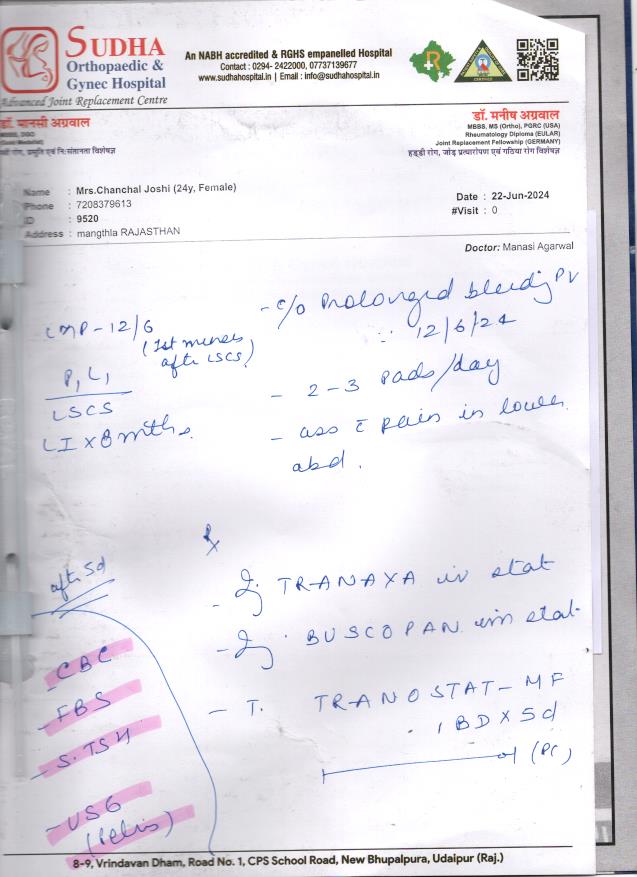 SUDHA
Orthopaedic &
Gynec Hospital
Advanced Joint Replacement Centre
An NABH accredited & RGHS empanelled Hospital
Contact : 0294- 2422000, 07737139677
www.sudhahospital.in | Email : info@sudhahospital.in
डॉ. मानसी अग्रवाल
स्त्री रोग, प्रसूति एवं निःसंतानता विशेषज्ञ
डॉ. मनीष अग्रवाल
MBBS, MS (Ortho), PGRC (USA)
Rheumatology Diploma (EULAR)
Joint Replacement Fellowship (GERMANY)
हड्डी रोग, जोड़ प्रत्यारोपण एवं गठिया रोग विशेषज्ञ
Name : Mrs.Chanchal Joshi (24y, Female)
Phone : 7208379613
ID : 9520
Address : mangthla RAJASTHAN
Date : 22-Jun-2024
#Visit : 0
Doctor: Manasi Agarwal
LMP - 12/6
(1st menses
after LSCS)
P1 L1
LSCS
LI x 8 mths.
- c/o Prolonged bleeding PV
∵ 12/6/24
- 2-3 Pads/day
- ass c̄ pain in lower
abd.
Rx
- Inj TRANAXA iv stat
- Inj. BUSCOPAN im stat
- T. TRANOSTAT-MF
1 BD x 5d
(PC)
after 5d
- CBC
- FBS
- S.TSH
- USG
(Pelvis)
8-9, Vrindavan Dham, Road No. 1, CPS School Road, New Bhupalpura, Udaipur (Raj.)